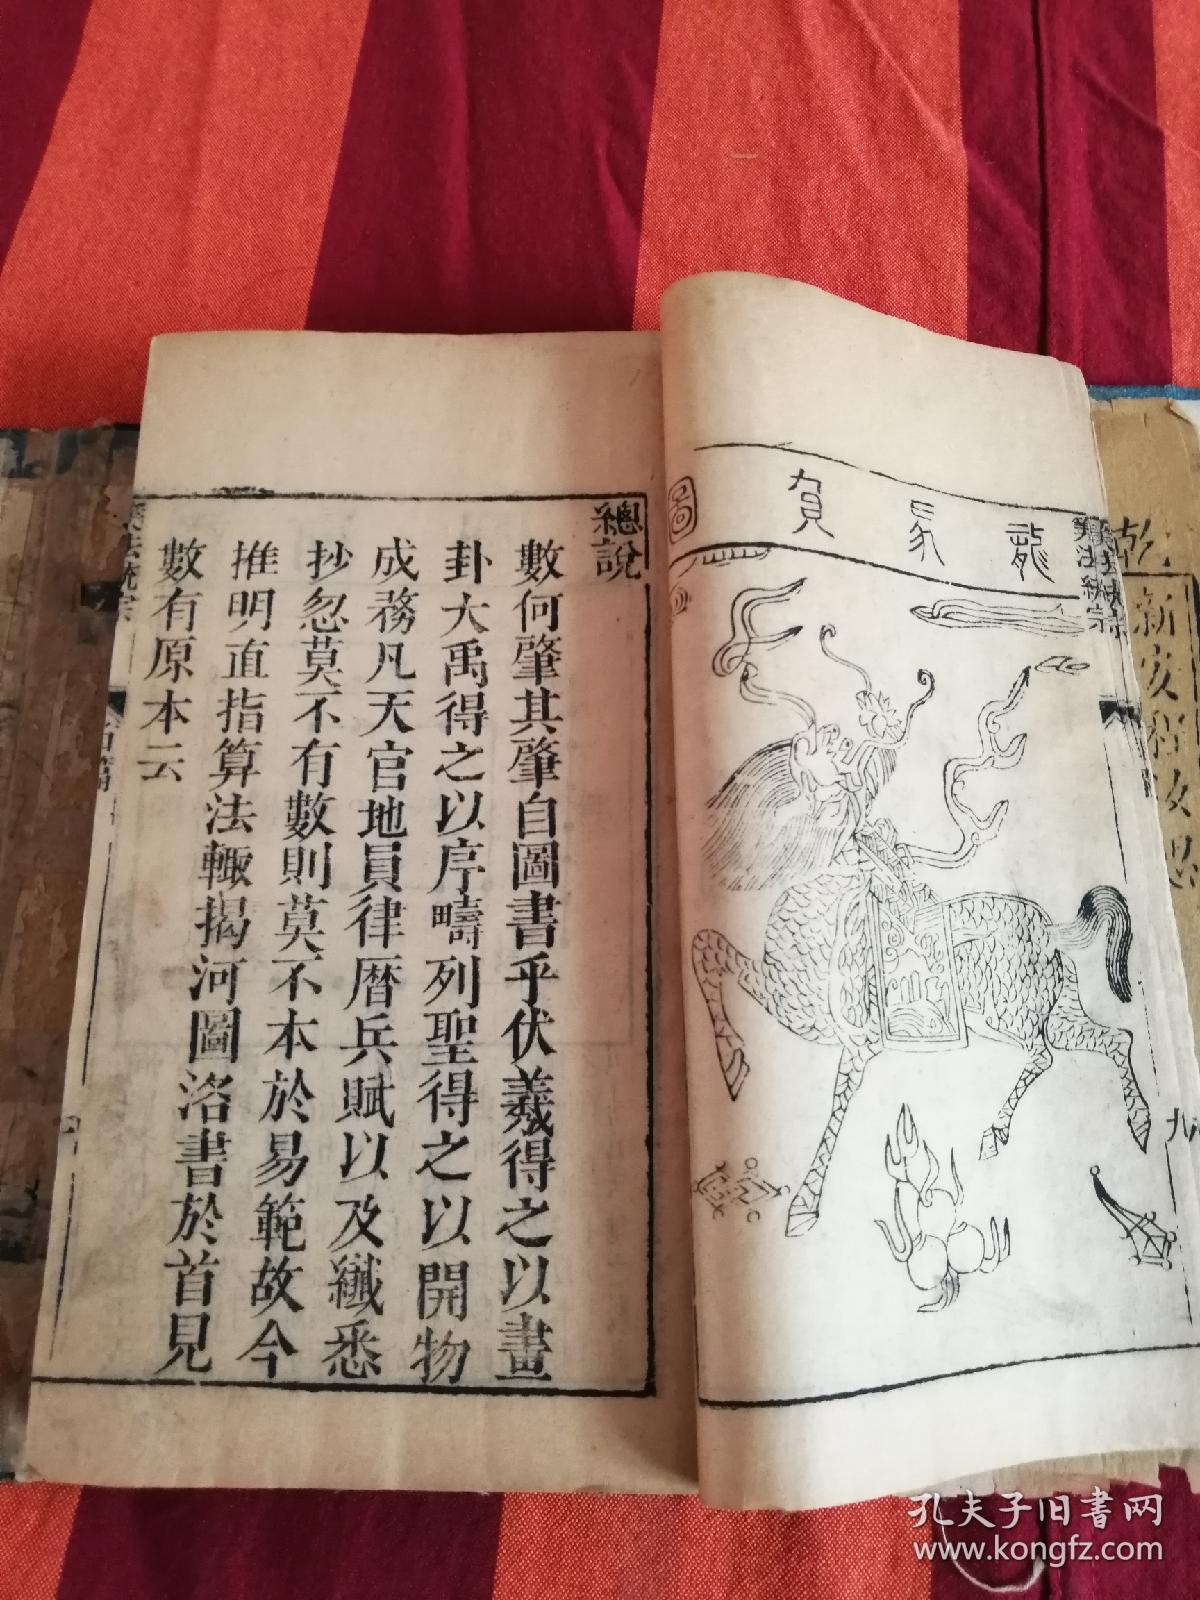 乾
新安程汝思
九
龍馬負圖
算法統宗
總說
數何肇其肇自圖書乎伏羲得之以畫
卦大禹得之以序疇列聖得之以開物
成務凡天官地員律曆兵賦以及纖悉
抄忽莫不有數則莫不本於易範故今
推明直指算法輙揭河圖洛書於首見
數有原本云
算法統宗
孔夫子旧書网
www.kongfz.com